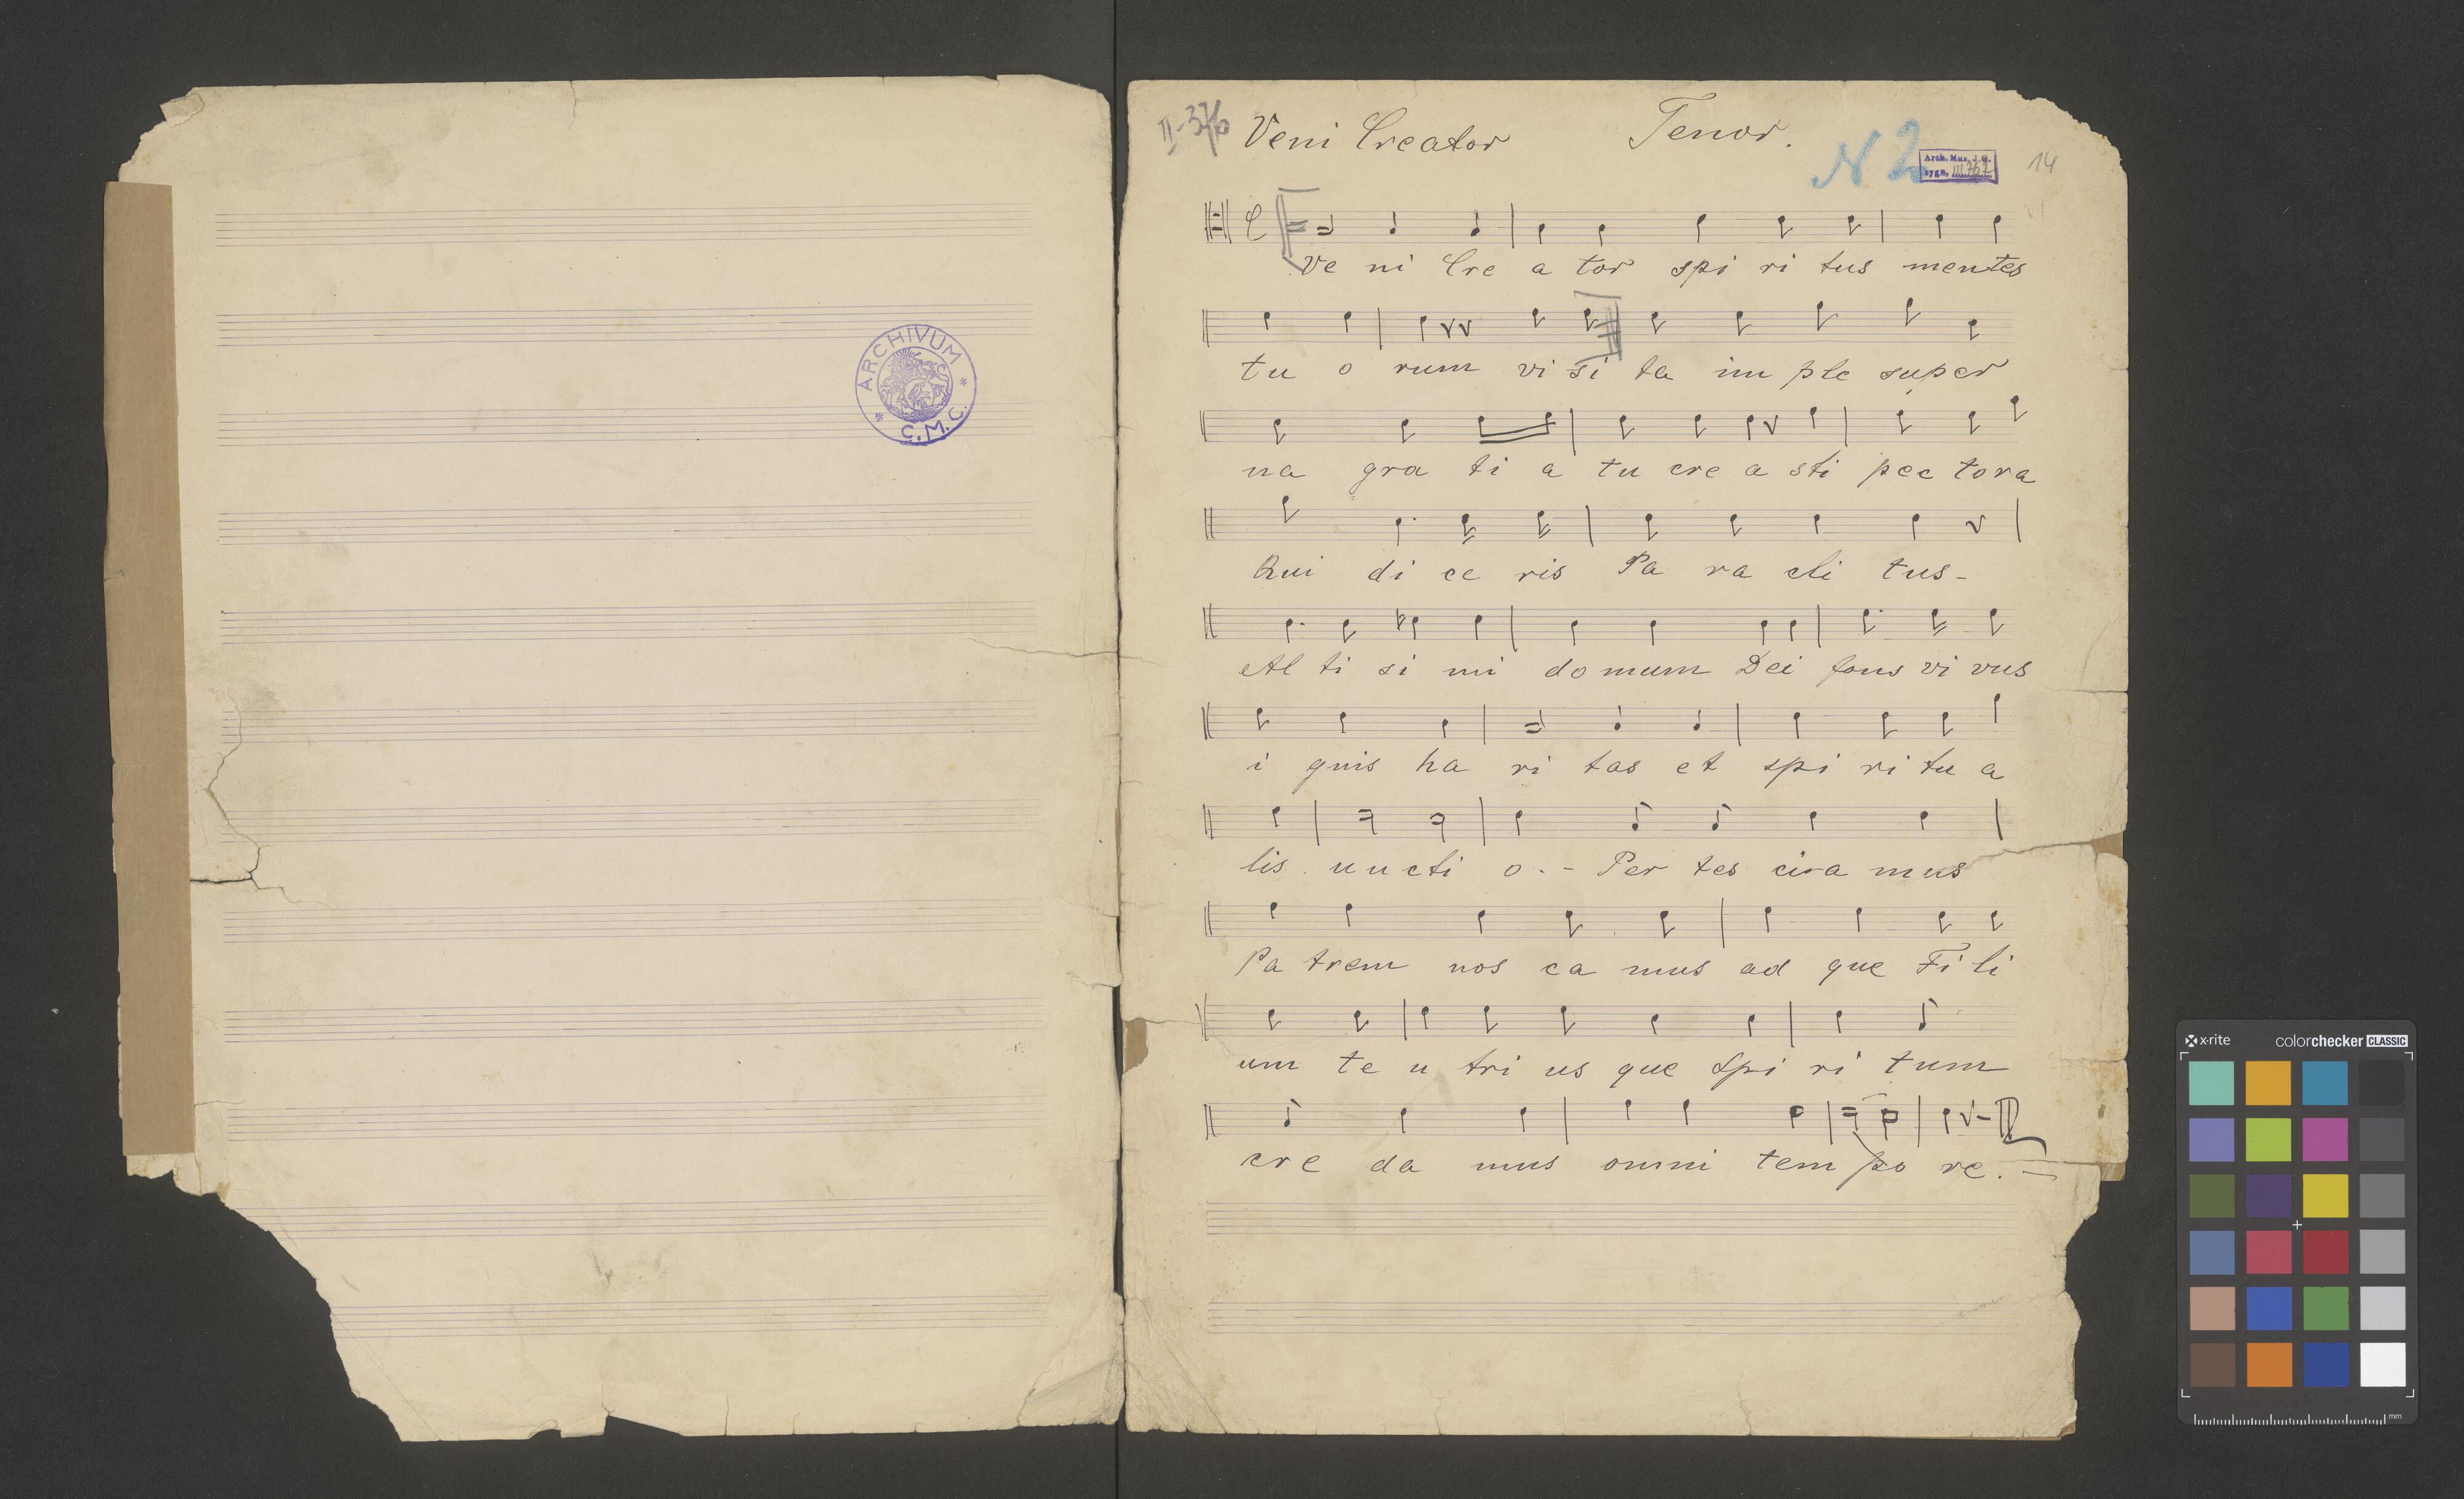 ARCHIVUM C.M.C.
II-376 Veni Creator Tenor. N 2 14
Arch. Mus. J. G.
sygn. III 767
Ve ni Cre a tor spi ri tus mentes
tu o rum vi si ta im ple super
na gra ti a tu cre a sti pec tora
Qui di ce ris Pa ra cli tus-
Al ti si mi domum Dei fons vi vus
i gnis ha ri tas et spi ri tu a
lis uncti o.- Per tes cia mus
Pa trem nos ca mus ad que Fi li
um te u tri us que Spi ri tum
cre da mus omni tem po re.-
x-rite colorchecker CLASSIC
mm